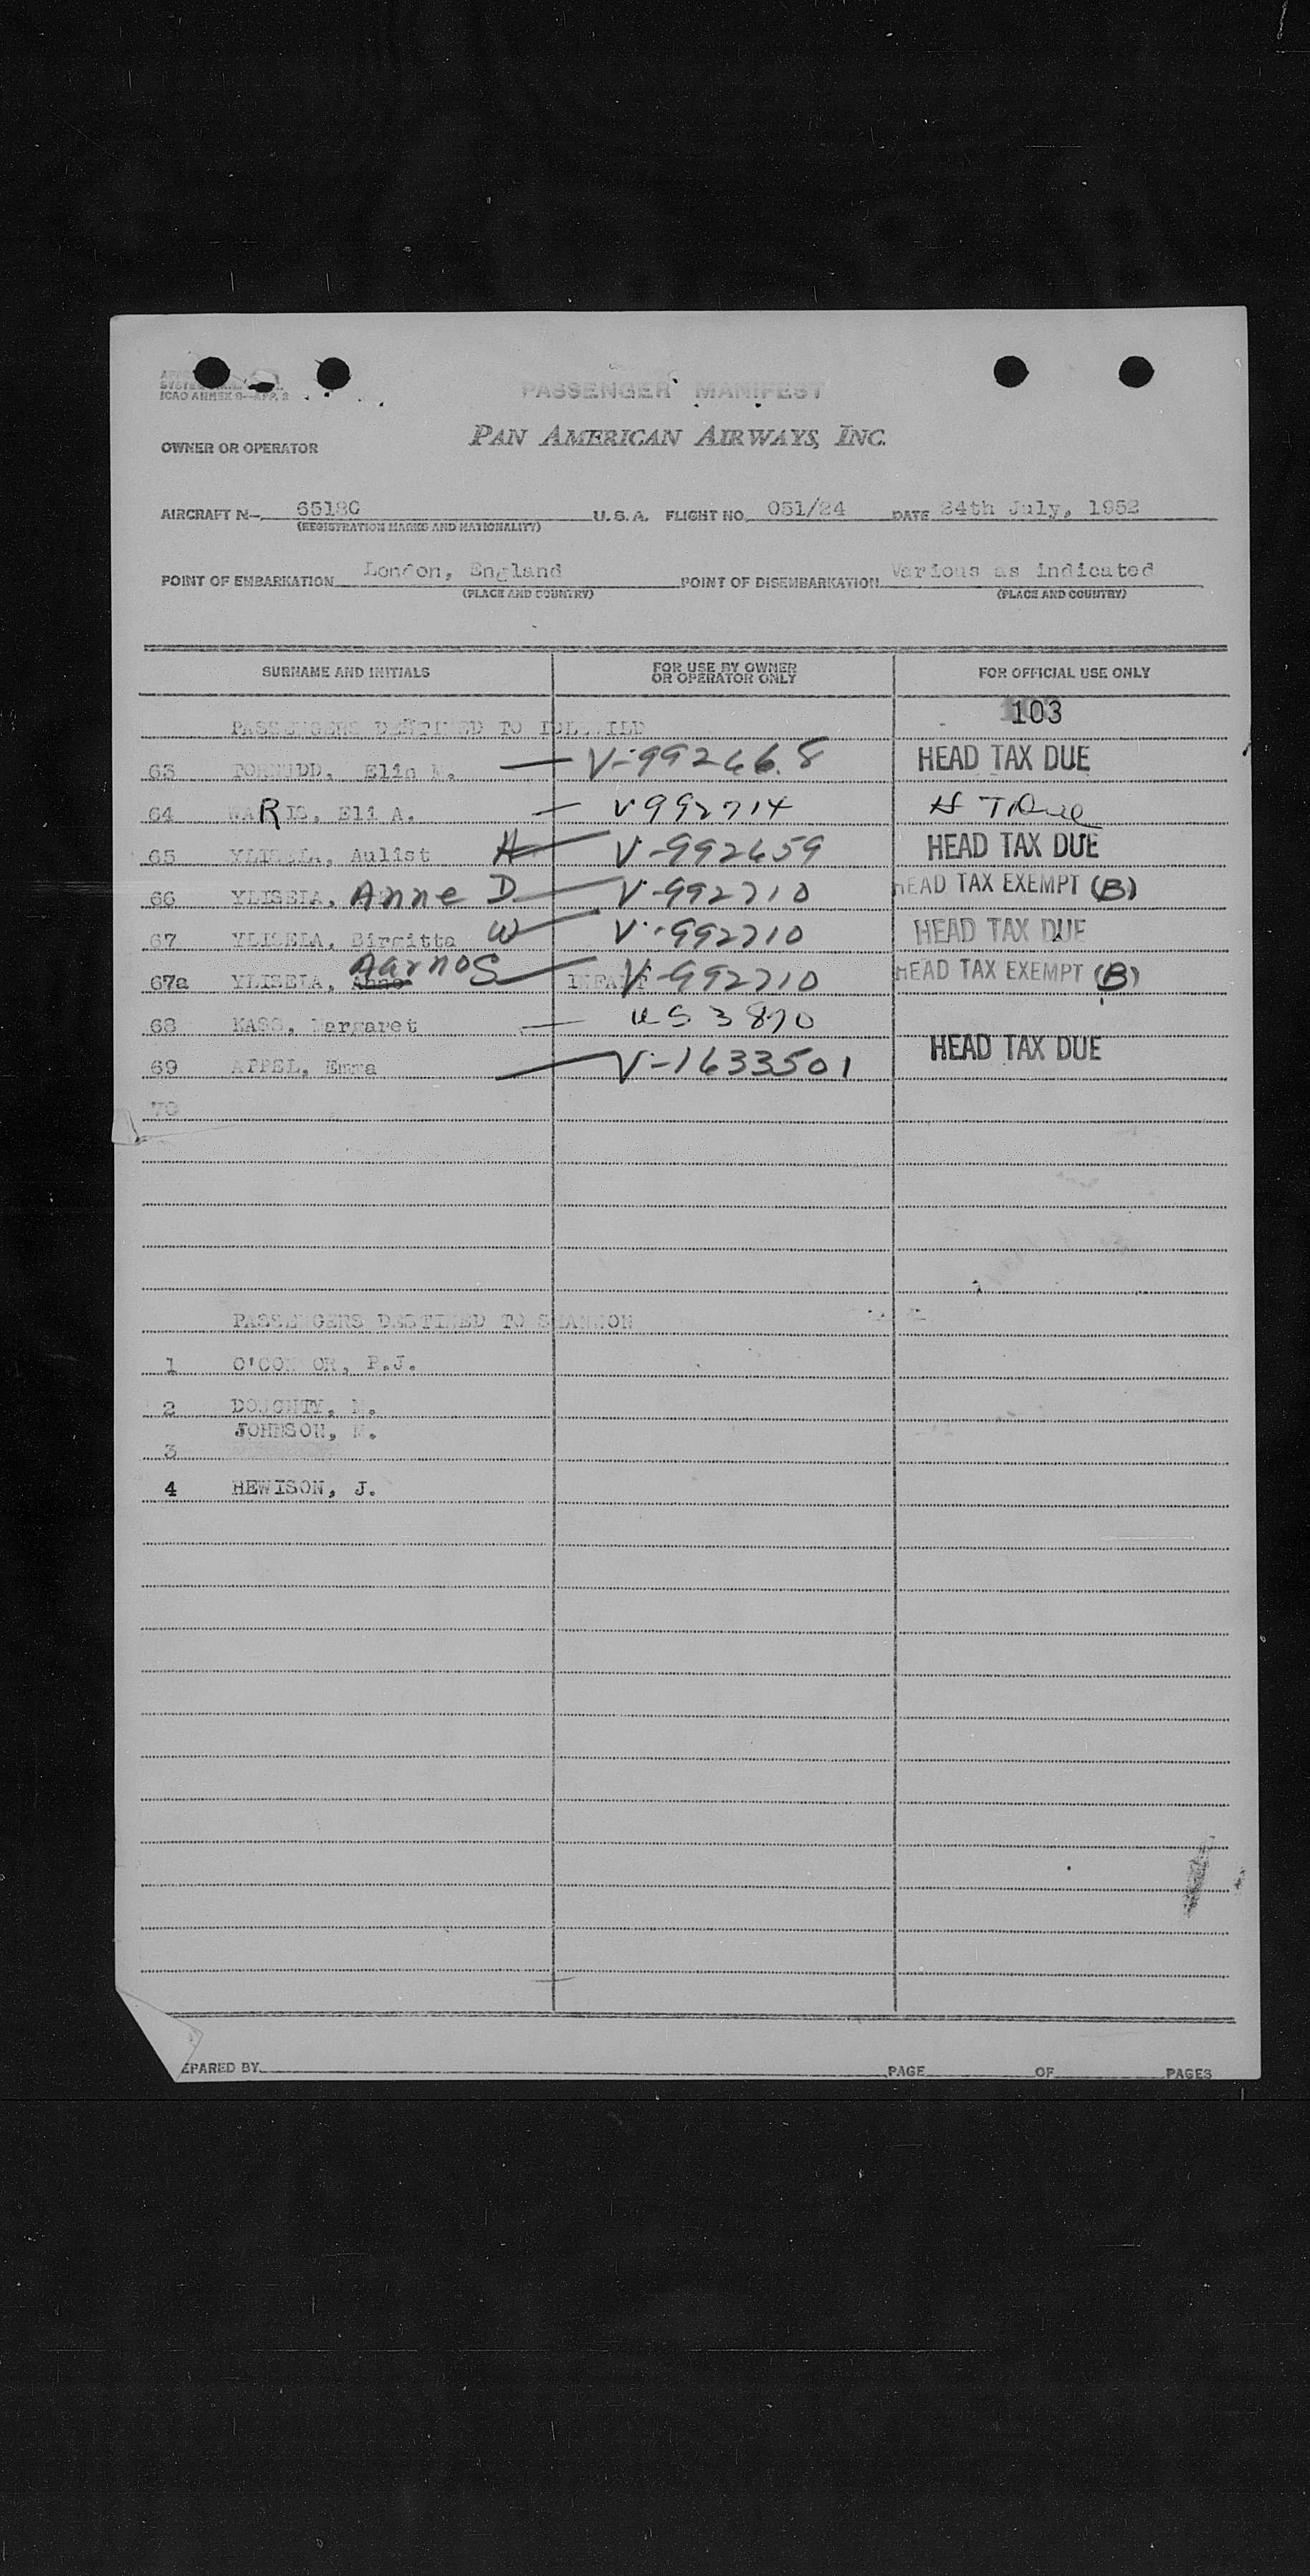 ICAO ANNEX 9—APP. 2
PASSENGER MANIFEST
OWNER OR OPERATOR PAN AMERICAN AIRWAYS, INC.
AIRCRAFT N— 6518C U. S. A. FLIGHT NO. 051/24 DATE 24th July, 1952
(REGISTRATION MARKS AND NATIONALITY)
POINT OF EMBARKATION London, England POINT OF DISEMBARKATION Various as indicated
(PLACE AND COUNTRY) (PLACE AND COUNTRY)
SURNAME AND INITIALS FOR USE BY OWNER OR OPERATOR ONLY FOR OFFICIAL USE ONLY
103
PASSENGERS DESTINED TO IDLEWILD
63 TORNUDD, Elin M. — V-992668 HEAD TAX DUE
64 WARIS, Eli A. — V 992714 H T Due
65 YLISELA, Aulist H — V-992659 HEAD TAX DUE
66 YLISELA, Anne D — V-992710 HEAD TAX EXEMPT (B)
67 YLISELA, Birgitta W — V-992710 HEAD TAX DUE
67a YLISELA, Aarno S — INFANT V-992710 HEAD TAX EXEMPT (B)
68 KASS, Margaret — US 3870
69 APPEL, Emma — V-1633501 HEAD TAX DUE
70
PASSENGERS DESTINED TO SHANNON
1 O'CONNOR, P.J.
2 DOUGHTY, M.
JOHNSON, M.
3
4 HEWISON, J.
EPARED BY PAGE OF PAGES